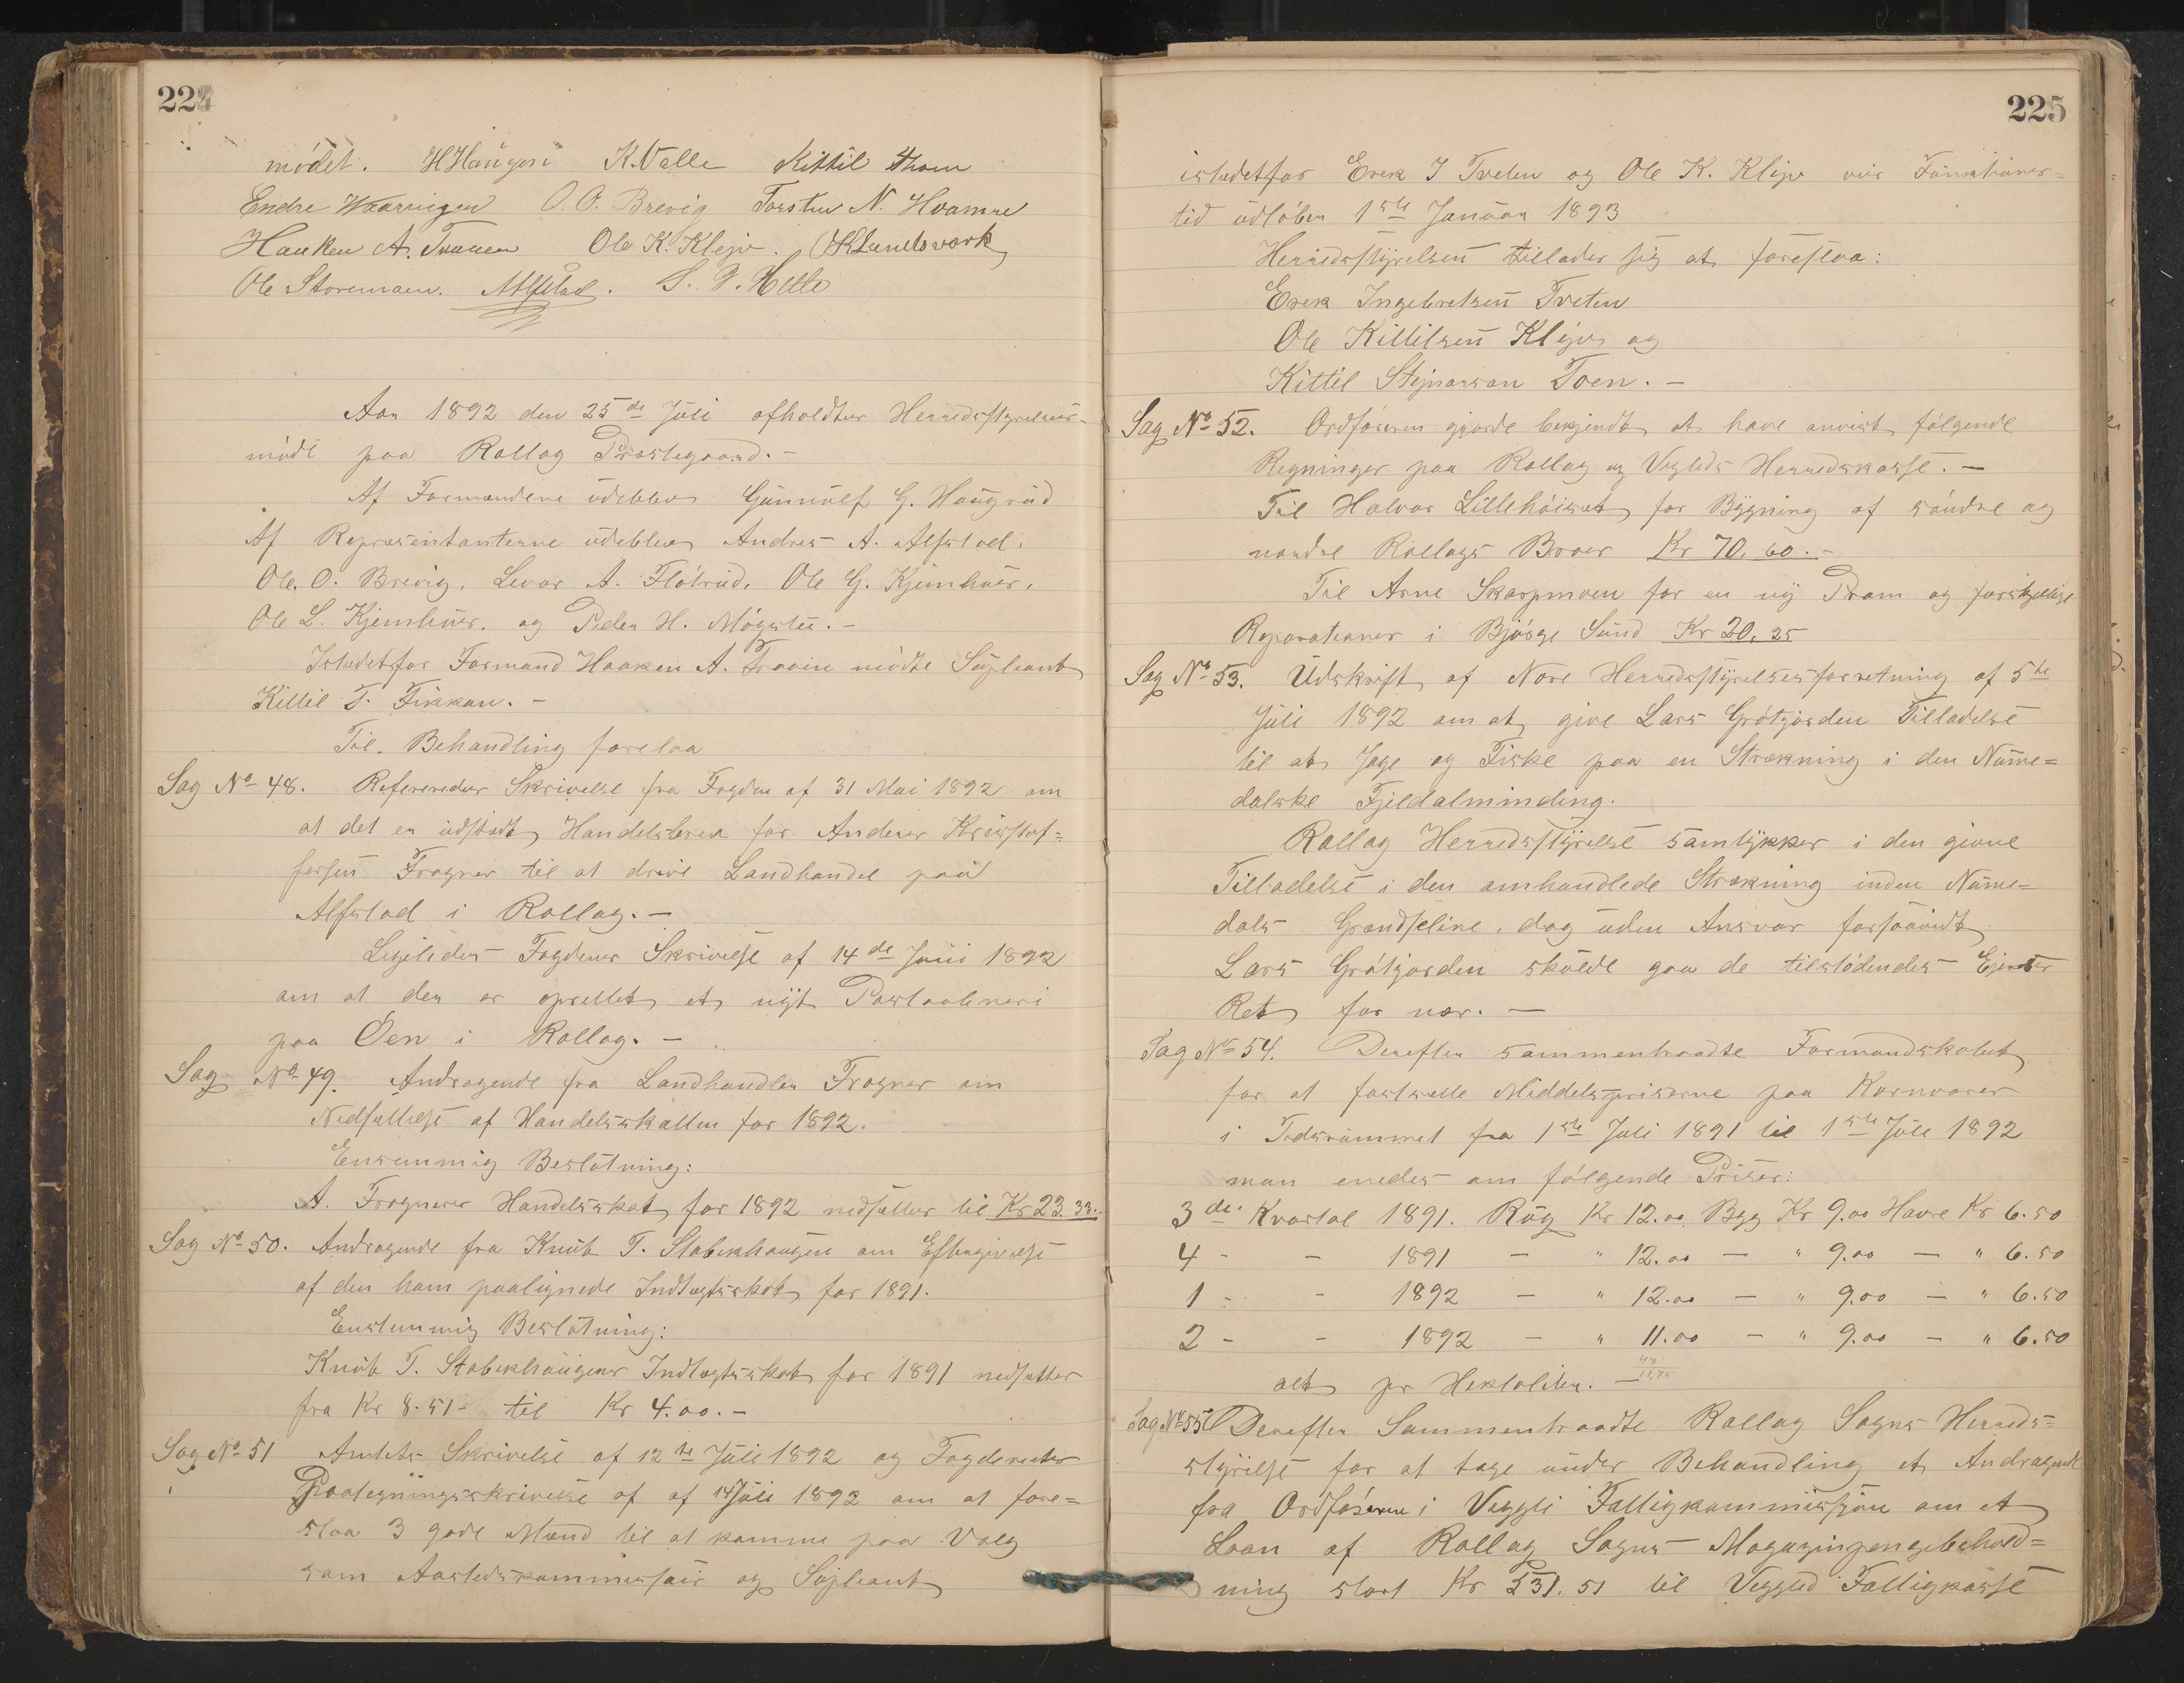 224
mödet. HHaugen K. Valle Kittil
Endre O. O. Brevig Torsten N. Hvamne
Haaken A. Ole K. Klejv. Lundsværk
Ole Storemoen. S. Helle
Aar 1892 den 25de Juli afholdtes Herredsstyrelses-
möde paa Rollag Præstegaard. -
Af Formændene udeblev Gunnulf G. Haugrud
Af Repræsentanterne udeblev Andres A. Alfstad.
Ole. O. Brevig, Levor A. Flötrud. Ole G. Kjemhus.
Ole L. Kjemhus. og Peder H. Mögstu. -
Istedetfor Formand Haaken A. Traaen mödte Supleant
Kittil T. Fikkan. -
Til Behandling forelaa
Sag No 48. Refereredes Skrivelse fra Fogden af 31 Mai 1892 om
at det er udstedt Handelsbrev for Anders Kristof=
fersen Frogner til at drive Landhandel paa
Alfstad i Rollag. -
Ligeledes Fogdens Skrivelse af 14de Juni 1892
om at der er oprettet et nyt Postaabneri
paa Öen i Rollag. -
Sag No 49. Andragende fra Landhandler Frogner om
Nedsættelse af Handelsskatten for 1892.
Enstemmig Beslutning:
A. Frogners Handelsskat for 1892 nedsættes til Kr 23.33.-
Sag No 50. Andragende fra Knut T. Stabekhaugen om Eftergivelse
af den ham paalignede Indtægtsskat for 1891.
Enstemmig Beslutning:
Knut T. Stabekhaugens Indtægtsskat for 1891 nedsættes
fra Kr 8.51- til Kr 4.00. -
Sag No 51 Amtets Skrivelse af 12te Juli 1892 og Fogderiets
Paategningsskrivelse af af 14 Juli 1892 om at fore=
slaa 3 gode Mænd til at komme paa Valg
som Aastedskommissair og Supleant
225
istedetfor Erek I Tveten og Ole K. Klejv vis Funktions=
tid udlöber 1ste Januar 1893
Herredsstyrelsen tillader sig at foreslaa:
Erek Ingebretsen Tveten
Ole Kittilsen Klejv og
Kittil Stejnarsøn Toen. -
Sag No 52. Ordföreren gjorde bekjendt at have anvist fölgende
Regninger paa Rollag og Vegleds Herredskasse. -
Til Halvor Lillehöiset for Bygning af söndre og
nordre Rollags Broer Kr 70.60.-
Til Arne Skarpmoen for en ny Pram og forskjellige
Reparationer i Björge Sund Kr 20.25
Sag No 53. Udskrift af Nore Herredsstyrelsesforretning af 5te
Juli 1892 om at give Lars Grötjorden Tilladelse
til at Jage og Fiske paa en Strækning i den Nume=
dalske Fjeldalminding.
Rollag Herredsstyrelse samtykker i den givne
Tilladelse i den omhandlede Strækning inden Nume=
dals Grændseline, dog uden Ansvar forsaavidt
Lars Grötjorden skulde gaa de tilstödendes Ejeres
Ret for nær. -
Sag No 54. Derefter sammentraadte Formandskabet
for at fastsætte Middelspriserne paa Kornvarer
i Tidsrummet fra 1ste Juli 1891 til 1ste Juli 1892
man enedes om fölgende Priser:
3de Kvartal 1891. Rug Kr 12.00 Byg Kr 9.00 Havre Kr 6.50
4 - - 1891 - " 12.00 - " 9.00 - " 6.50
1 - - 1892 - " 12.00 - " 9.00 - " 6.50
2 - - 1892 - " 11.00 - " 9.00 - " 6.50
alt pr Hektoliter. -
Sag No 55 Derefter Sammentraadte Rollag Sogns Herreds=
styrelse for at tage under Behandling et Andragende
fra Ordföreren i Veggli Fattigkommissjon om et
Laan af Rollag Sogns Magazinpengebehold=
ning stort Kr 531.51 til Vegglid Fattigkasse